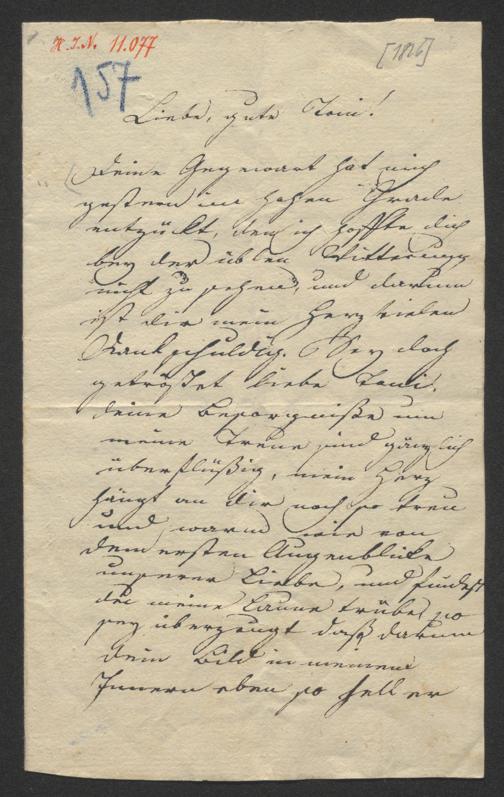 H.I.N. 11.077
[1826]
157
Liebe, gute Toni!
Deine Gegenwart hat mich
gestern im hohen Grade
entzückt, den ich hoffte dich
bey der üblen Witterung
nicht zu sehen, und darum
ist dir mein Herz vielen
Dank schuldig. Sey doch
getröstet liebe Toni.
deine Besorgniße um
meine Treue sind gänzlich
überflüßig, mein Herz
hängt an dir noch so treu
und warm wie von
dem ersten Augenblicke
unserer Liebe, und findest
du meine Laune trübe, so
sey überzeugt daß darum
dein Bild in meinem
Innern eben so hell er